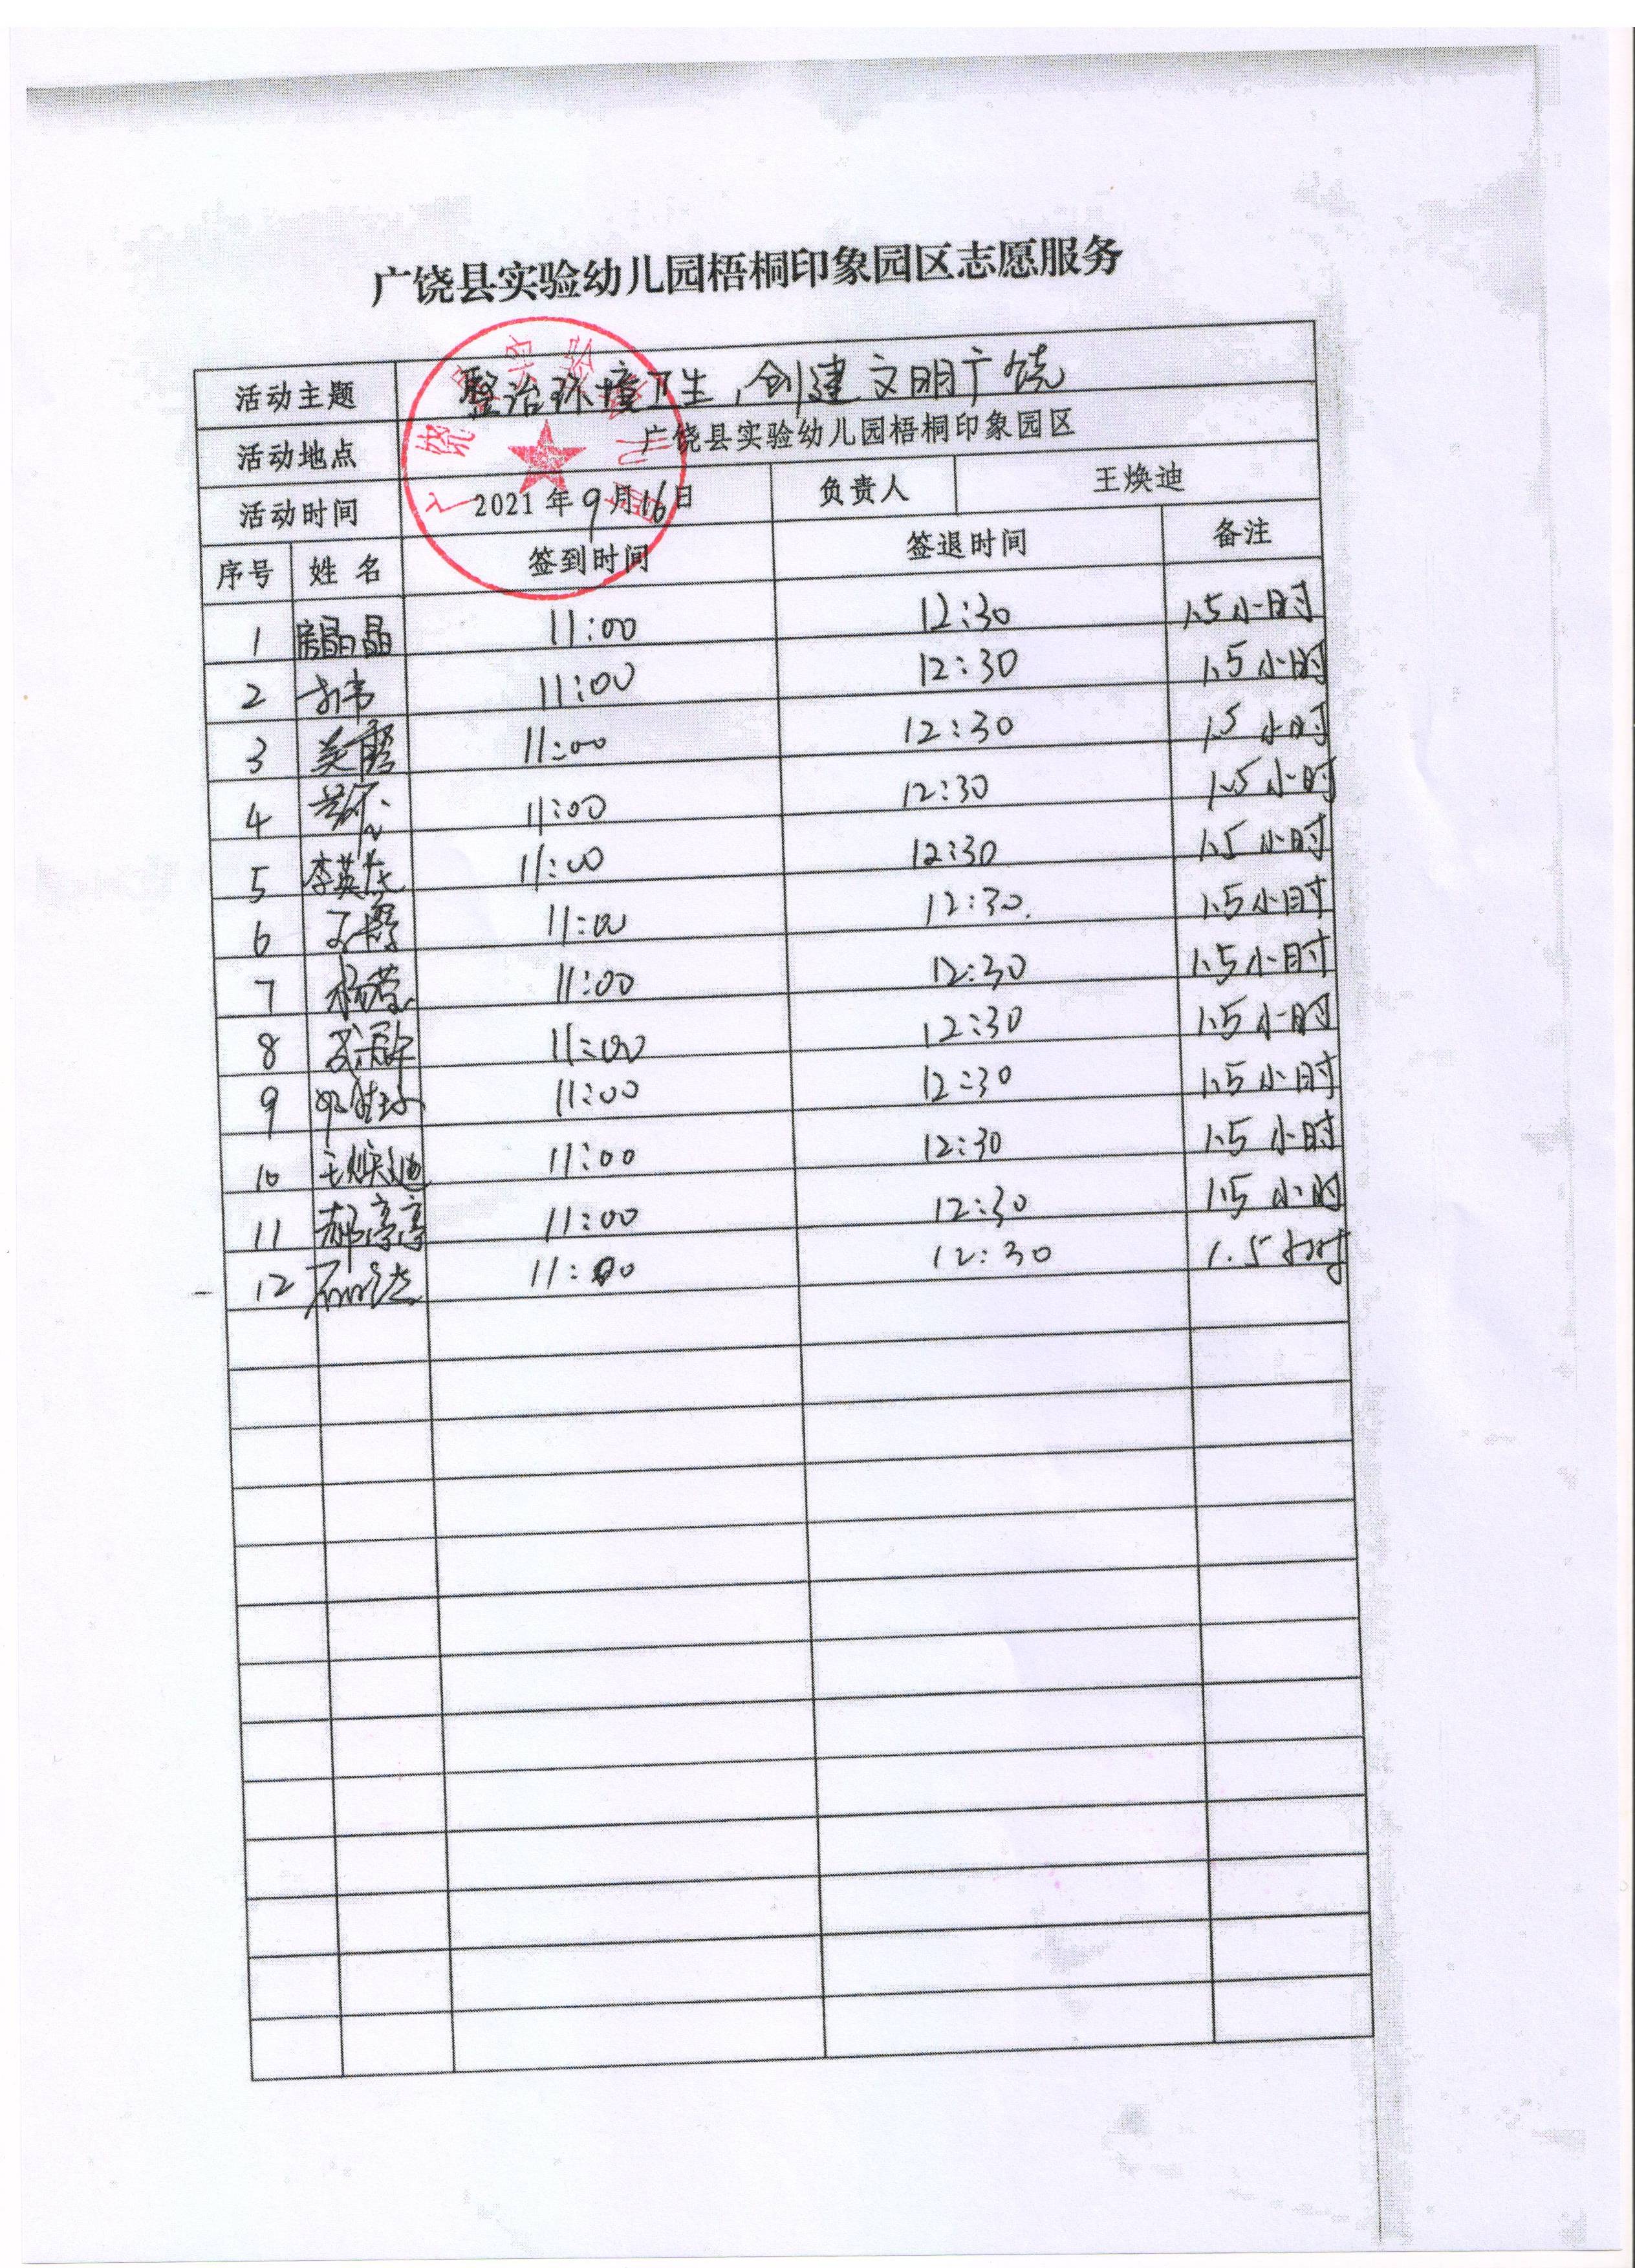 广饶县实验幼儿园梧桐印象园区志愿服务
活动主题 整治环境卫生,创建文明广饶
活动地点 广饶县实验幼儿园梧桐印象园区
活动时间 2021年9月16日 负责人 王焕迪
序号 姓名 签到时间 签退时间 备注
1 晶晶 11:00 12:30 1.5小时
2 11:00 12:30 1.5小时
3 11:00 12:30 1.5小时
4 11:00 12:30 1.5小时
5 李英 11:00 12:30 1.5小时
6 11:00 12:30. 1.5小时
7 杨 11:00 12:30 1.5小时
8 11:00 12:30 1.5小时
9 11:00 12:30 1.5小时
10 王焕迪 11:00 12:30 1.5小时
11 郝亭亭 11:00 12:30 1.5小时
12 11:00 12:30 1.5小时